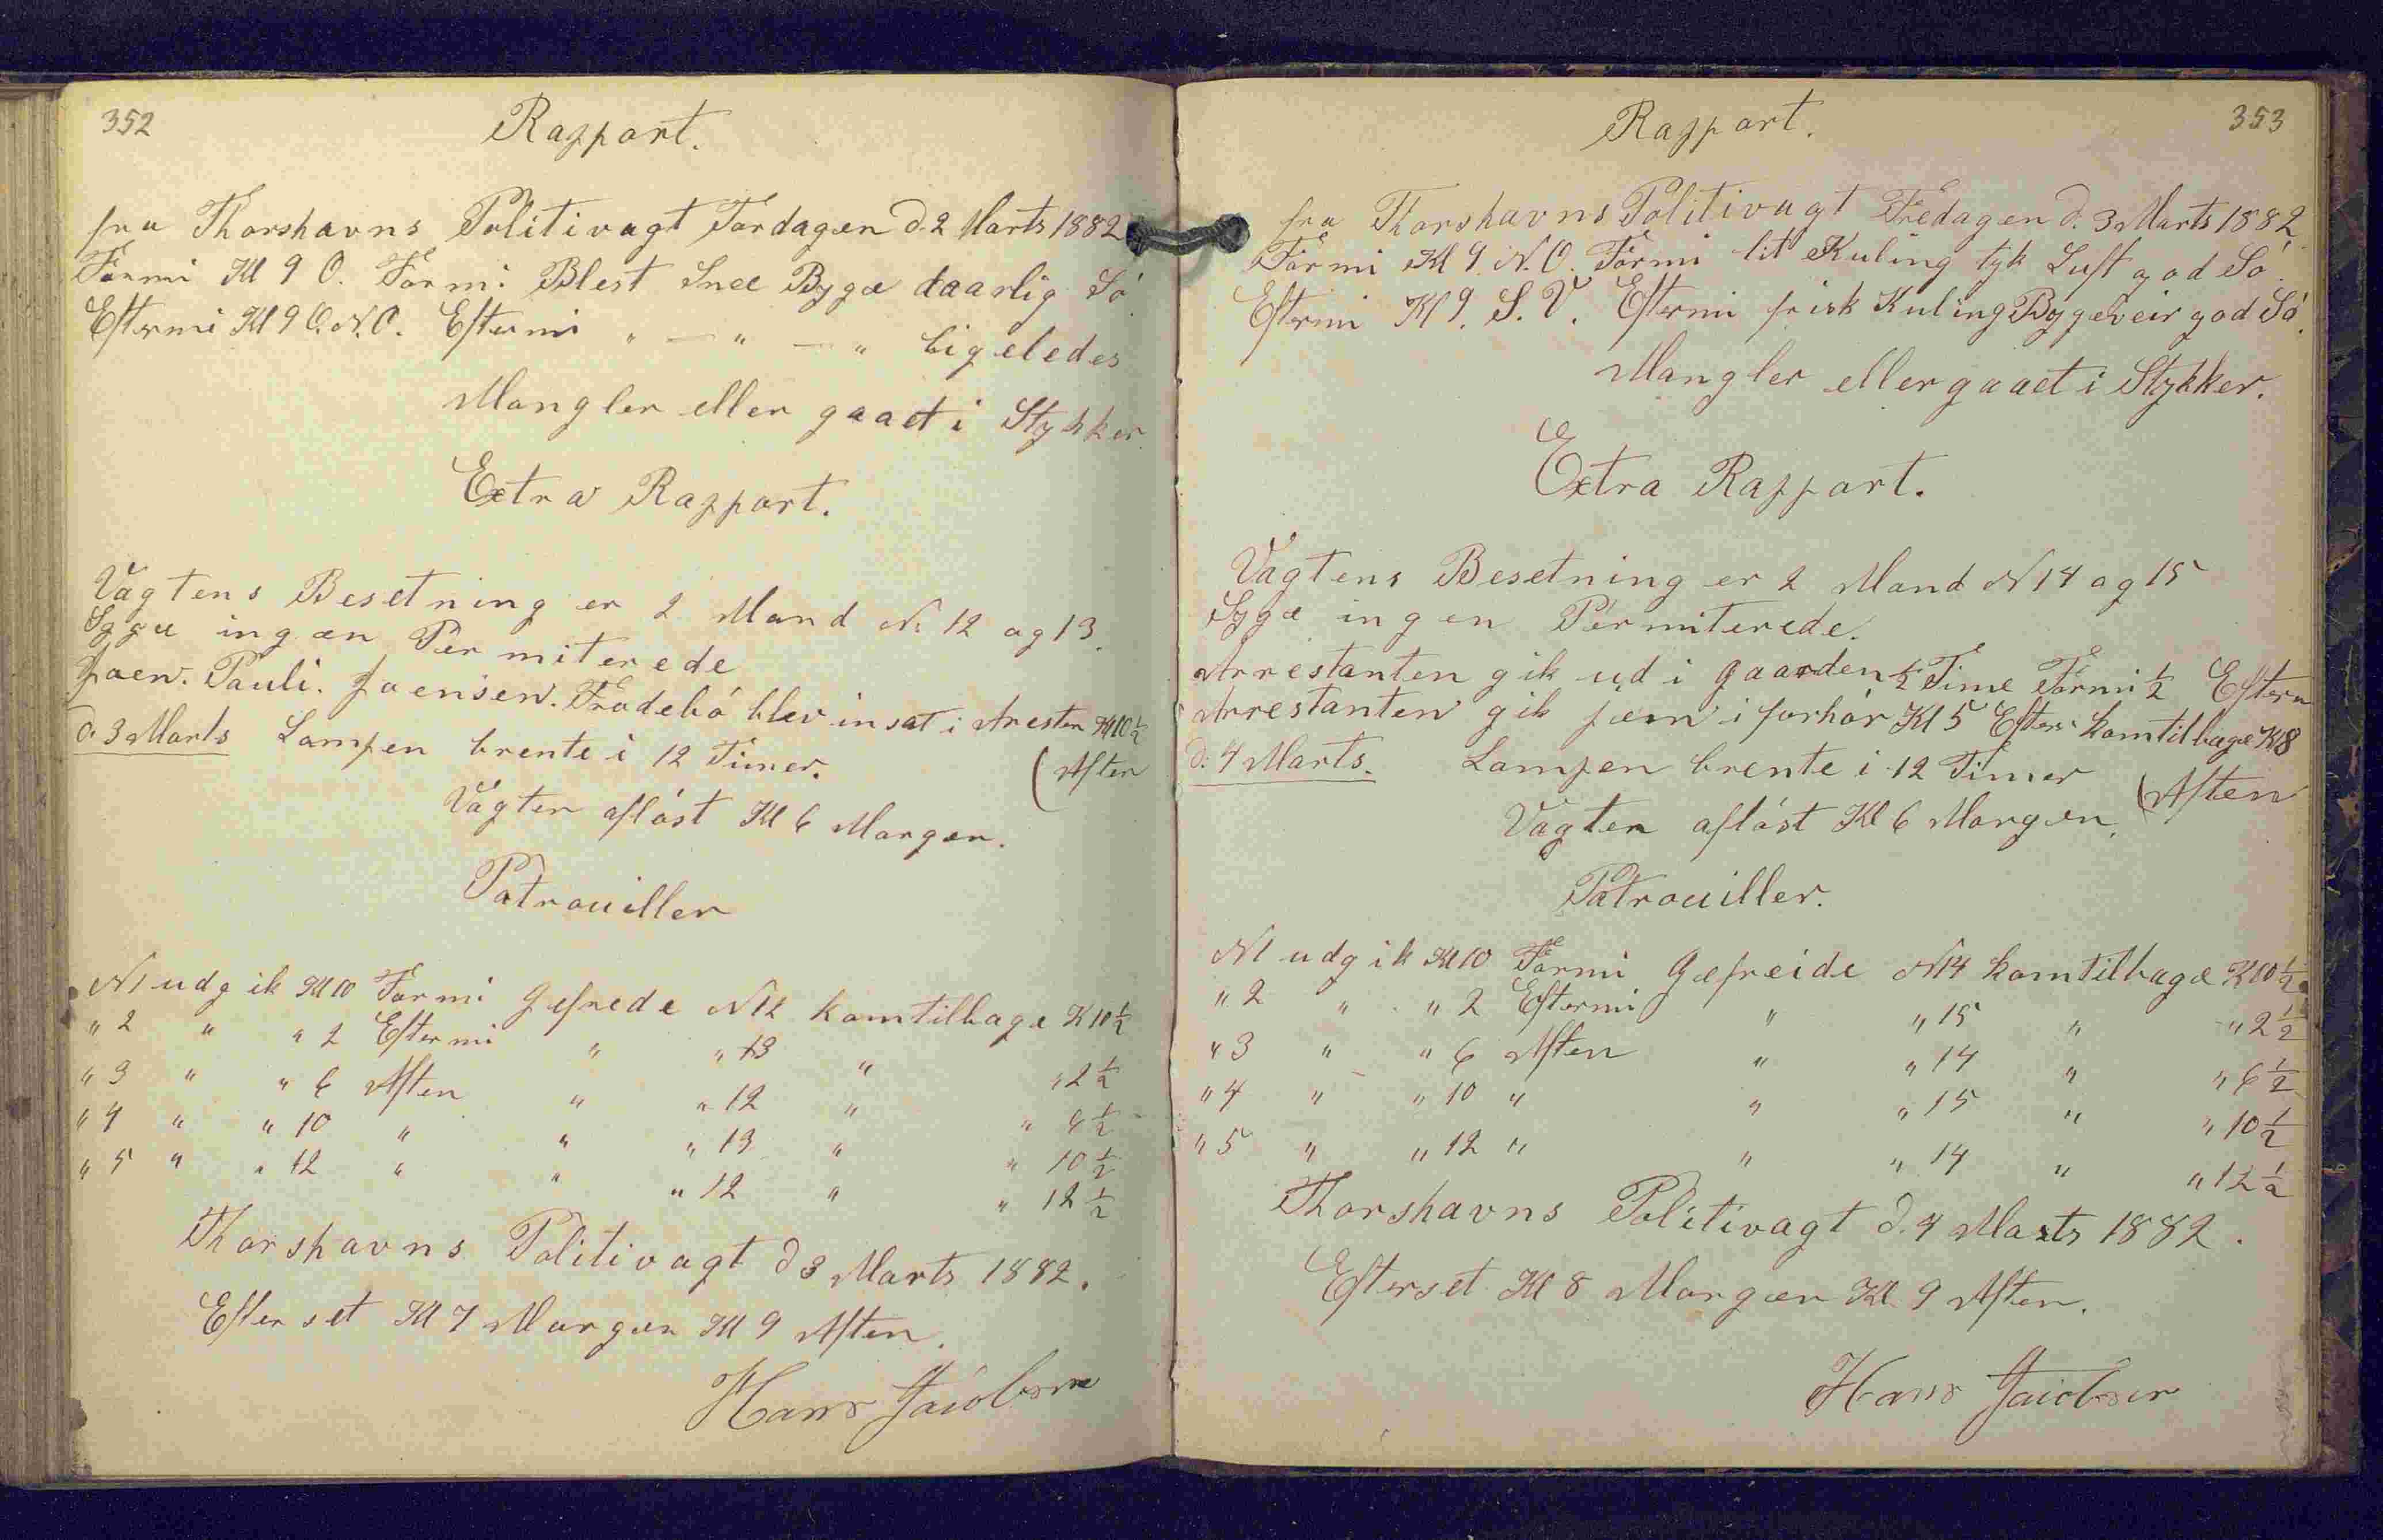 352
Rapport.
fra Thorshavns Politivagt Tordagen d. 2 Marts 1882
Formi Kl 9 O. Formi Blest Snee Byge daarlig Só
Eftermi Kl 9 O.N.O. Eftermi " — " — " ligeledes
Mangler eller gaaet i Stykker
Extra Rapport.
Vagtens Besetning er 2 Mand N: 12 og 13.
Syge ingen Permiterede
Joen. Pauli. Joensen. Tradebó blev insat i Aresten Kl 10 1/2
(Aften
d. 3 Marts Lampen brente i 12 Timer.
Vagten aflóst Kl 6 Morgen.
Patrouiller
N1 udgik Kl 10 Formi Gefrede N12 kom tilbage K 10 1/2
" 2 " " 2 Eftermi " " 13 " " 2 1/2
" 3 " " 6 Aften " " 12 " " 6 1/2
" 4 " " 10 " " " 13 " " 10 1/2
" 5 " " 12 " " " 12 " " 12 1/2
Thorshavns Politivagt d 3 Marts 1882.
Efterset Kl 7 Morgen Kl 9 Aften.
Hans Jacobsen
353
Rapport.
fra Thorshavns Politivagt Fredagen d. 3 Marts 1882
Formi Kl 9. N.O. Formi lit Kuling tyk Luft god Só.
Eftermi Kl 9. S.V. Eftermi frisk Kuling Bygeveir god Só.
Mangler eller gaaet i Stykker.
Extra Rapport.
Vagtens Besetning er 2 Mand N 14 og 15
Syge ingen Permiterede.
Arrestanten gik ud i Gaarden 1/2 Time Formi 1/2 Efterm
Arrestanten gik jem i forhór Kl 5 Efter. kom tilbage Kl 8
(Aften
d: 4 Marts. Lampen brente i 12 Timer
Vagten aflóst Kl 6 Morgen.
Patrouiller.
N1 udgik Kl 10 Formi Gefreide N14 kom tilbage K 10 1/2
" 2 " " 2 Eftermi " " 15 " " 2 1/2
" 3 " " 6 Aften " " 14 " " 6 1/2
" 4 " " 10 " " " 15 " " 10 1/2
" 5 " " 12 " " " 14 " " 12 1/2
Thorshavns Politivagt d. 4 Marts 1882.
Efterset Kl 8 Morgen Kl. 9 Aften.
Hans Jacobsen